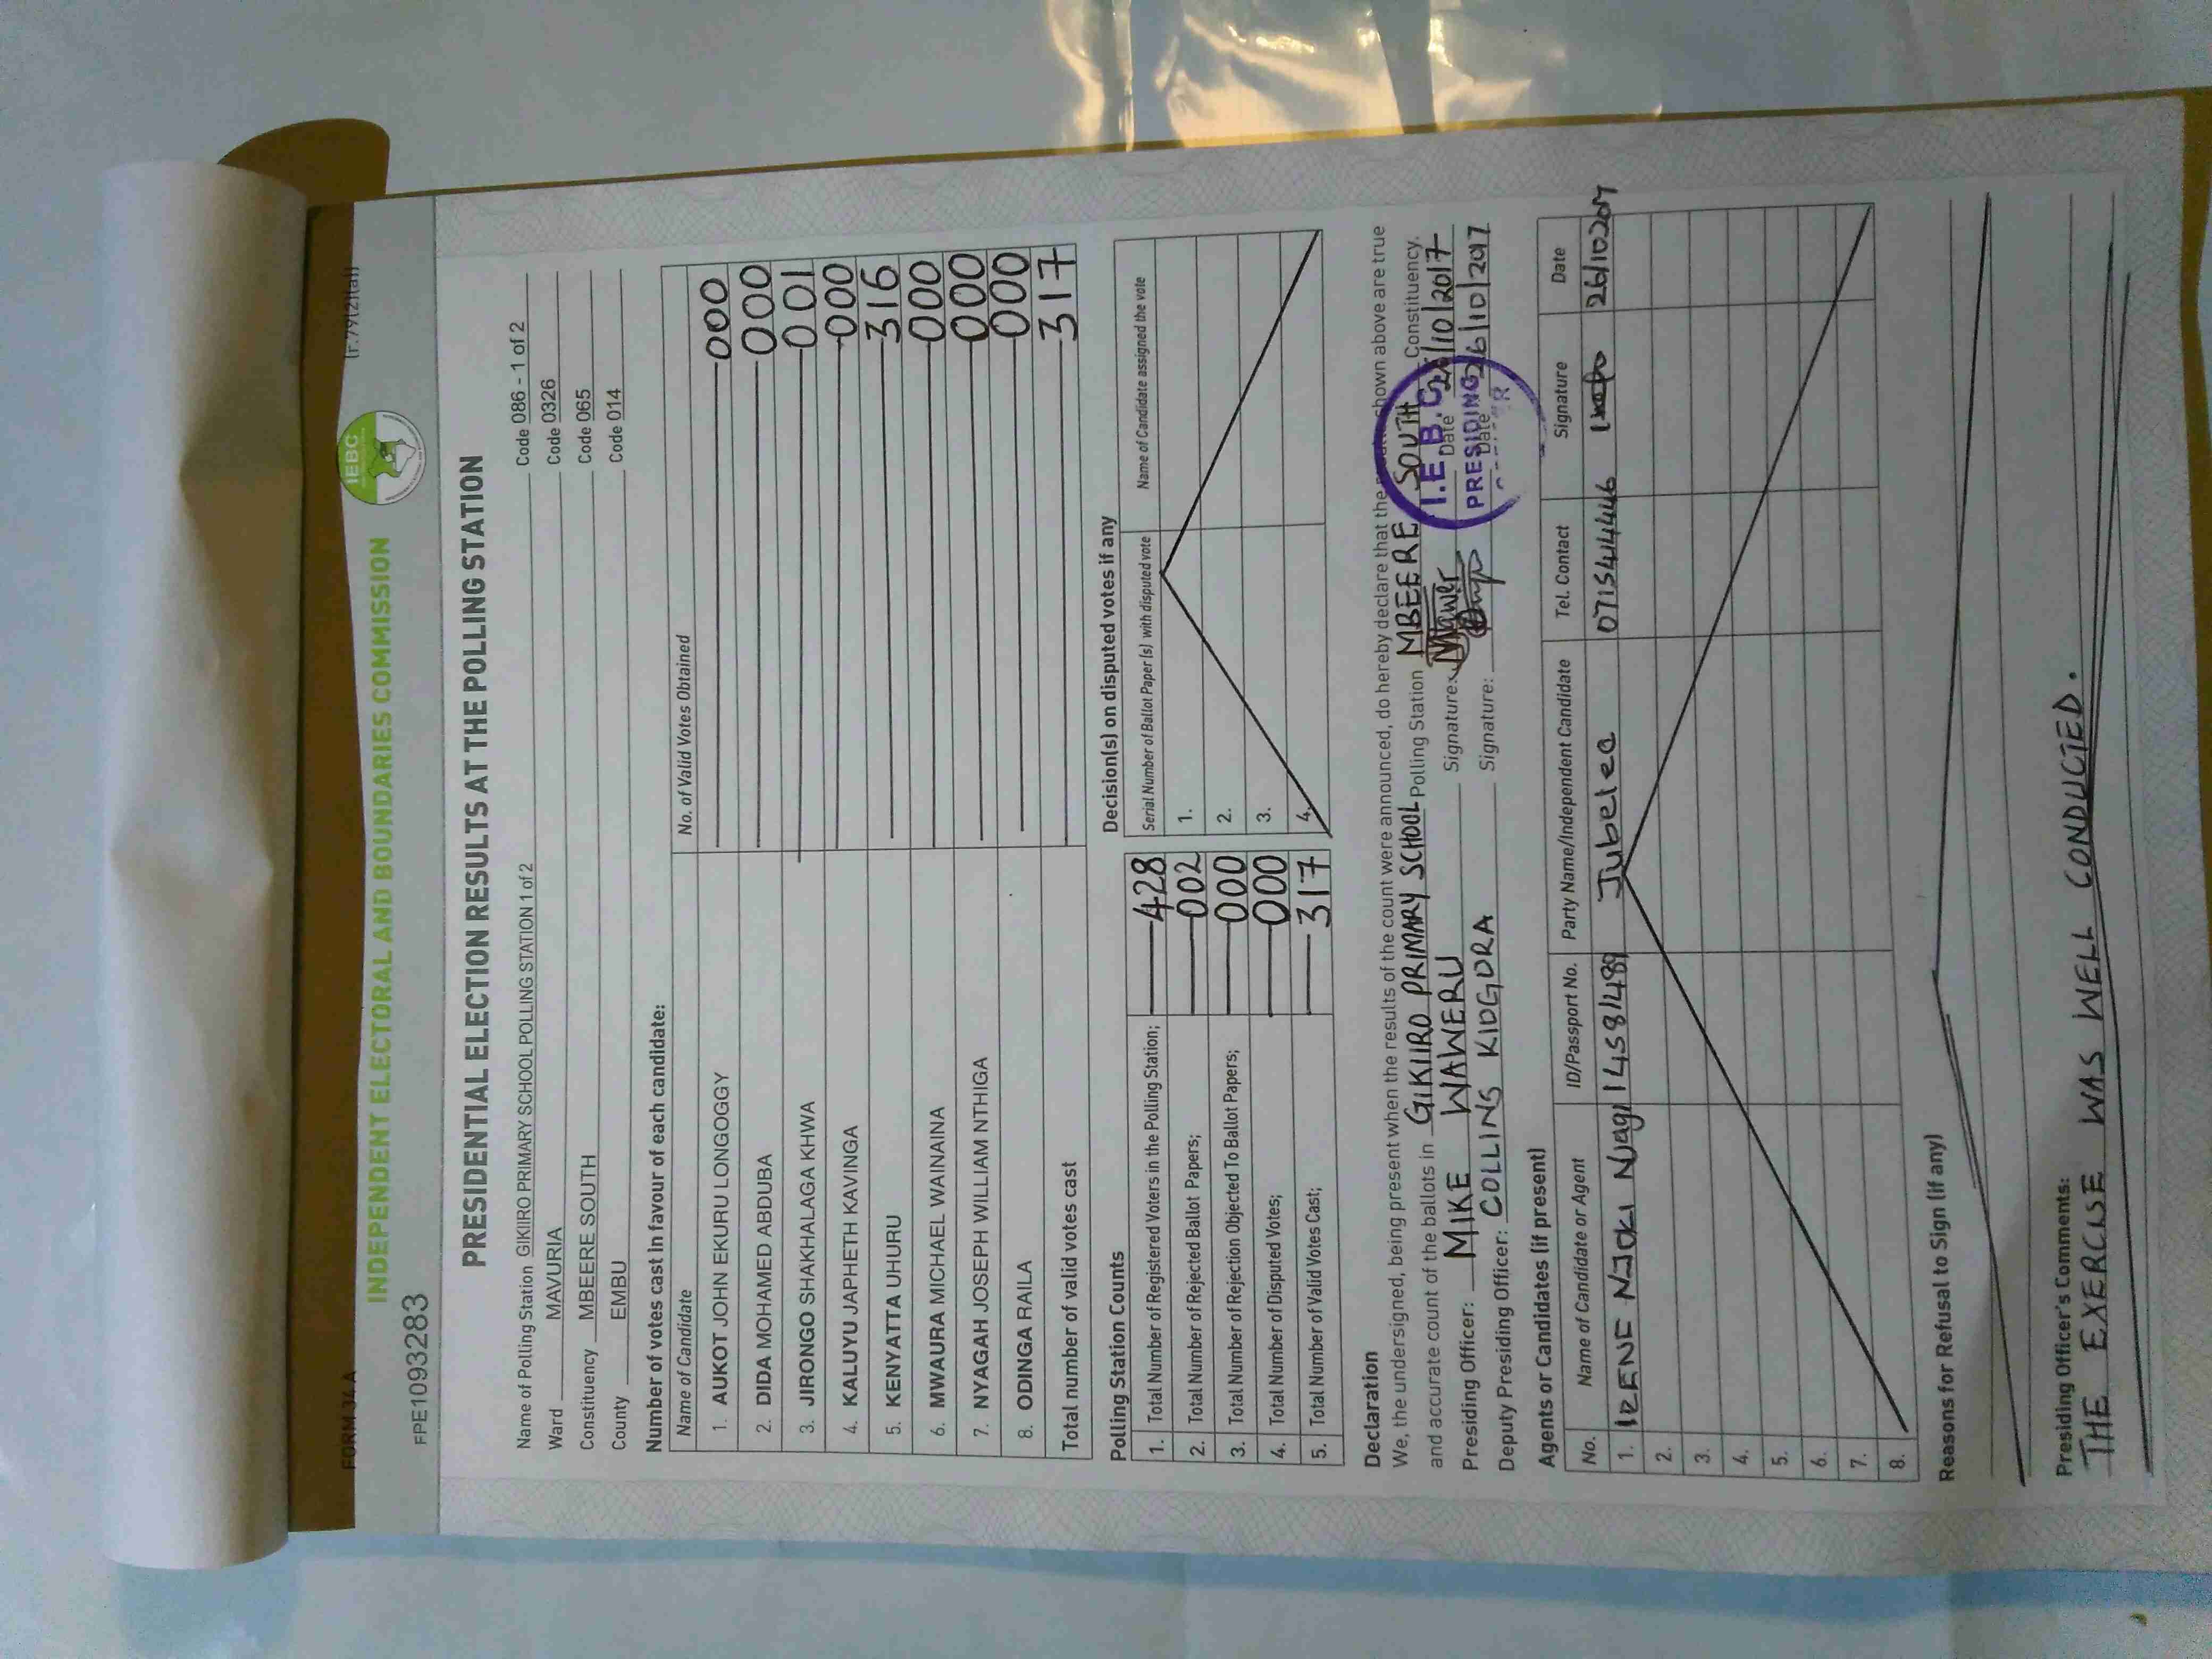 FORM 34 A
(r.79(2)(a))
INDEPENDENT ELECTORAL AND BOUNDARIES COMMISSION
IEBC
FPE1093283
PRESIDENTIAL ELECTION RESULTS AT THE POLLING STATION
Name of Polling Station GIKIIRO PRIMARY SCHOOL POLLING STATION 1 of 2 Code 086 - 1 of 2
Ward MAVURIA Code 0326
Constituency MBEERE SOUTH Code 065
County EMBU Code 014
Number of votes cast in favour of each candidate:
Name of Candidate No. of Valid Votes Obtained
1. AUKOT JOHN EKURU LONGOGGY 000
2. DIDA MOHAMED ABDUBA 000
3. JIRONGO SHAKHALAGA KHWA 001
4. KALUYU JAPHETH KAVINGA 000
5. KENYATTA UHURU 316
6. MWAURA MICHAEL WAINAINA 000
7. NYAGAH JOSEPH WILLIAM NTHIGA 000
8. ODINGA RAILA 000
Total number of valid votes cast 317
Polling Station Counts
1. Total Number of Registered Voters in the Polling Station; 428
2. Total Number of Rejected Ballot Papers; 002
3. Total Number of Rejection Objected To Ballot Papers; 000
4. Total Number of Disputed Votes; 000
5. Total Number of Valid Votes Cast; 317
Decision(s) on disputed votes if any
Serial Number of Ballot Paper (s) with disputed vote Name of Candidate assigned the vote
1.
2.
3.
4.
Declaration
We, the undersigned, being present when the results of the count were announced, do hereby declare that the shown above are true
and accurate count of the ballots in GIKIIRO PRIMARY SCHOOL Polling Station MBEERE SOUTH Constituency.
Presiding Officer: MIKE WAWERU Signature: Date 26/10/2017
Deputy Presiding Officer: COLLINS KIOGORA Signature: Date 26/10/2017
I.E.B.C.
PRESIDING
Agents or Candidates (if present)
No. Name of Candidate or Agent ID/Passport No. Party Name/Independent Candidate Tel. Contact Signature Date
1. IRENE NJOKI Njagi 14581489 Jubelee 0715444446 26/10/2017
2.
3.
4.
5.
6.
7.
8.
Reasons for Refusal to Sign (if any)
Presiding Officer's Comments:
THE EXERCISE WAS WELL CONDUCTED.